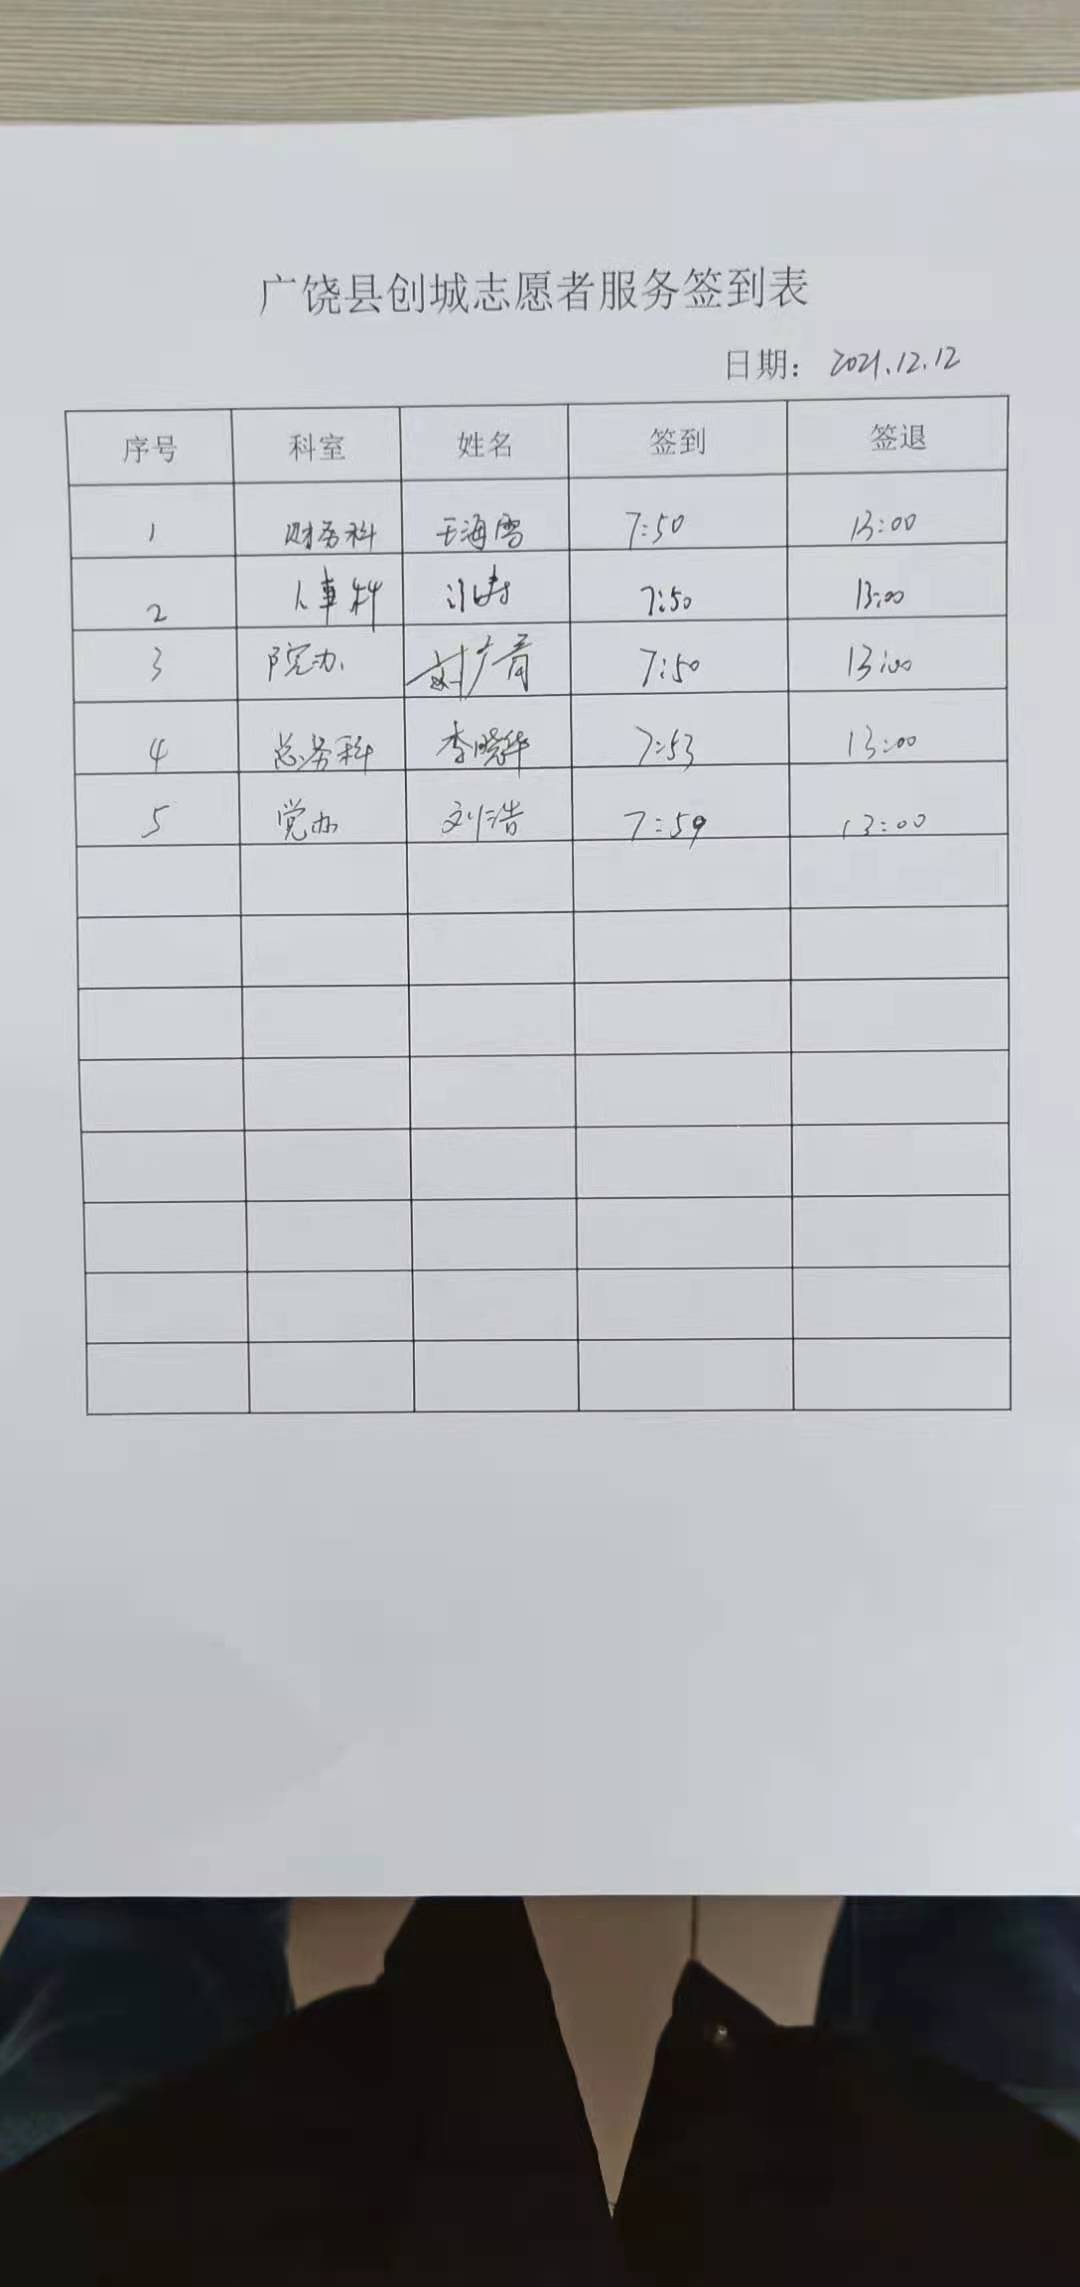 广饶县创城志愿者服务签到表
日期： 2021.12.12
序号 科室 姓名 签到 签退
1 财务科 王海雪 7:50 13:00
2 人事科 7:50 13:00
3 院办 刘广青 7:50 13:00
4 总务科 李晓华 7:53 13:00
5 党办 刘浩 7:59 13:00